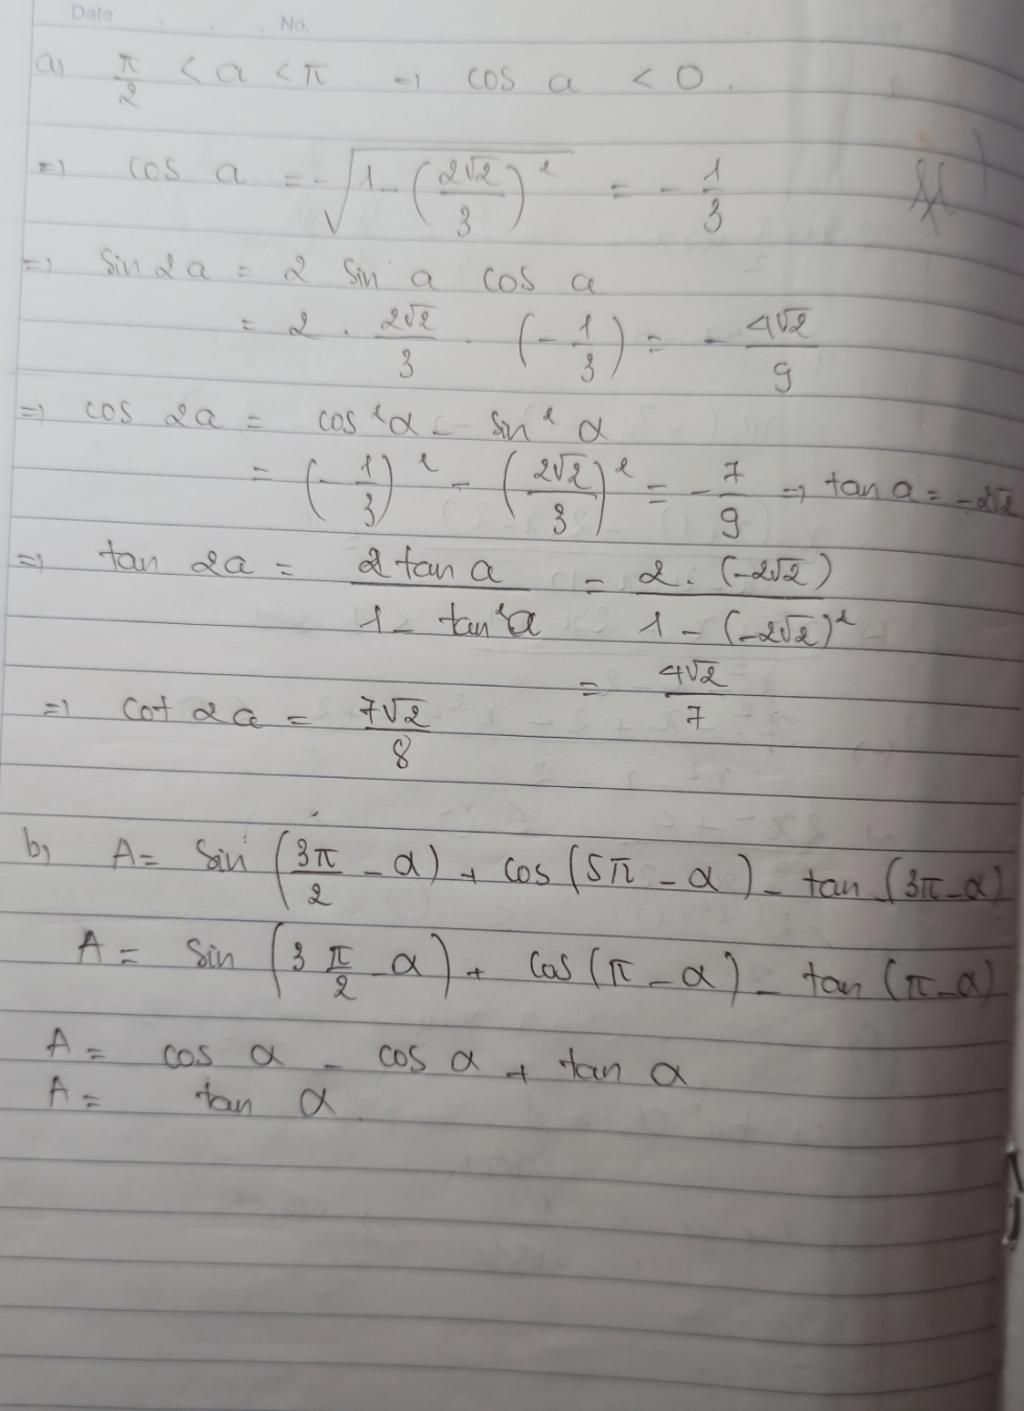 Date . . . No.
a) π/2 < a < π => cos a < 0.
=> cos a = -√(1-(2√2/3)²) = -1/3
=> sin2a = 2 sin a cos a
= 2 . 2√2/3 . (-1/3) = -4√2/9
=> cos 2a = cos²α - sin²α
= (-1/3)² - (2√2/3)² = -7/9 => tan a = -2√2
=> tan 2a = 2 tan a/1 - tan²a = 2.(-2√2)/1-(-2√2)²
= 4√2/7
=> cot 2a = 7√2/8
b) A = sin (3π/2 - α) + cos (5π - α) - tan (3π - α)
A = sin (3 π/2 - α) + cos (π - α) - tan (π - α)
A = cos α - cos α + tan α
A = tan α.